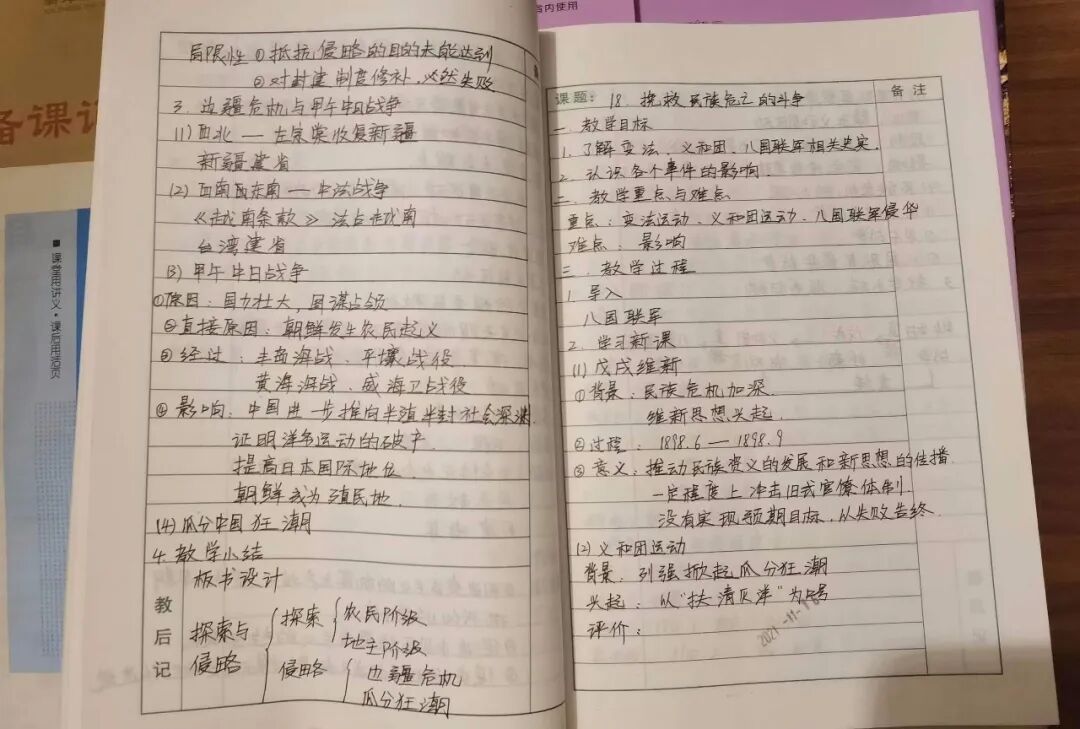 省内使用
备课
■课堂用讲义·课后用活页
局限性 ①抵抗侵略的目的未能达到
②对封建制度修补,必然失败
3. 边疆危机与甲午中日战争
(1)西北 — 左宗棠收复新疆
新疆建省
(2)西南西东南 — 中法战争
《越南条款》 法占越南
台湾建省
(3)甲午中日战争
①原因:国力壮大,图谋占领
②直接原因:朝鲜发生农民起义
③经过:丰岛海战、平壤战役
黄海海战、威海卫战役
④影响:中国进一步推向半殖半封社会深渊
证明洋务运动的破产
提高日本国际地位
朝鲜成为殖民地.
(4)瓜分中国狂潮
4. 教学小结
教后记
板书设计
探索与侵略
探索
农民阶级
地主阶级
侵略
边疆危机
瓜分狂潮
课题: 18. 挽救民族危亡的斗争
备注
一.教学目标
1. 了解变法、义和团、八国联军相关史实.
2. 认识各个事件的影响.
二.教学重点与难点
重点:变法运动、义和团运动、八国联军侵华
难点:影响
三.教学过程
1. 导入
八国联军
2. 学习新课
(1)戊戌维新
①背景:民族危机加深.
维新思想兴起.
②过程:1898.6 — 1898.9
③意义:推动民族资义的发展和新思想的传播.
一定程度上冲击旧式官僚体制.
没有实现预期目标,以失败告终.
(2)义和团运动
背景:列强掀起瓜分狂潮
兴起:以"扶清灭洋"为口号
评价: